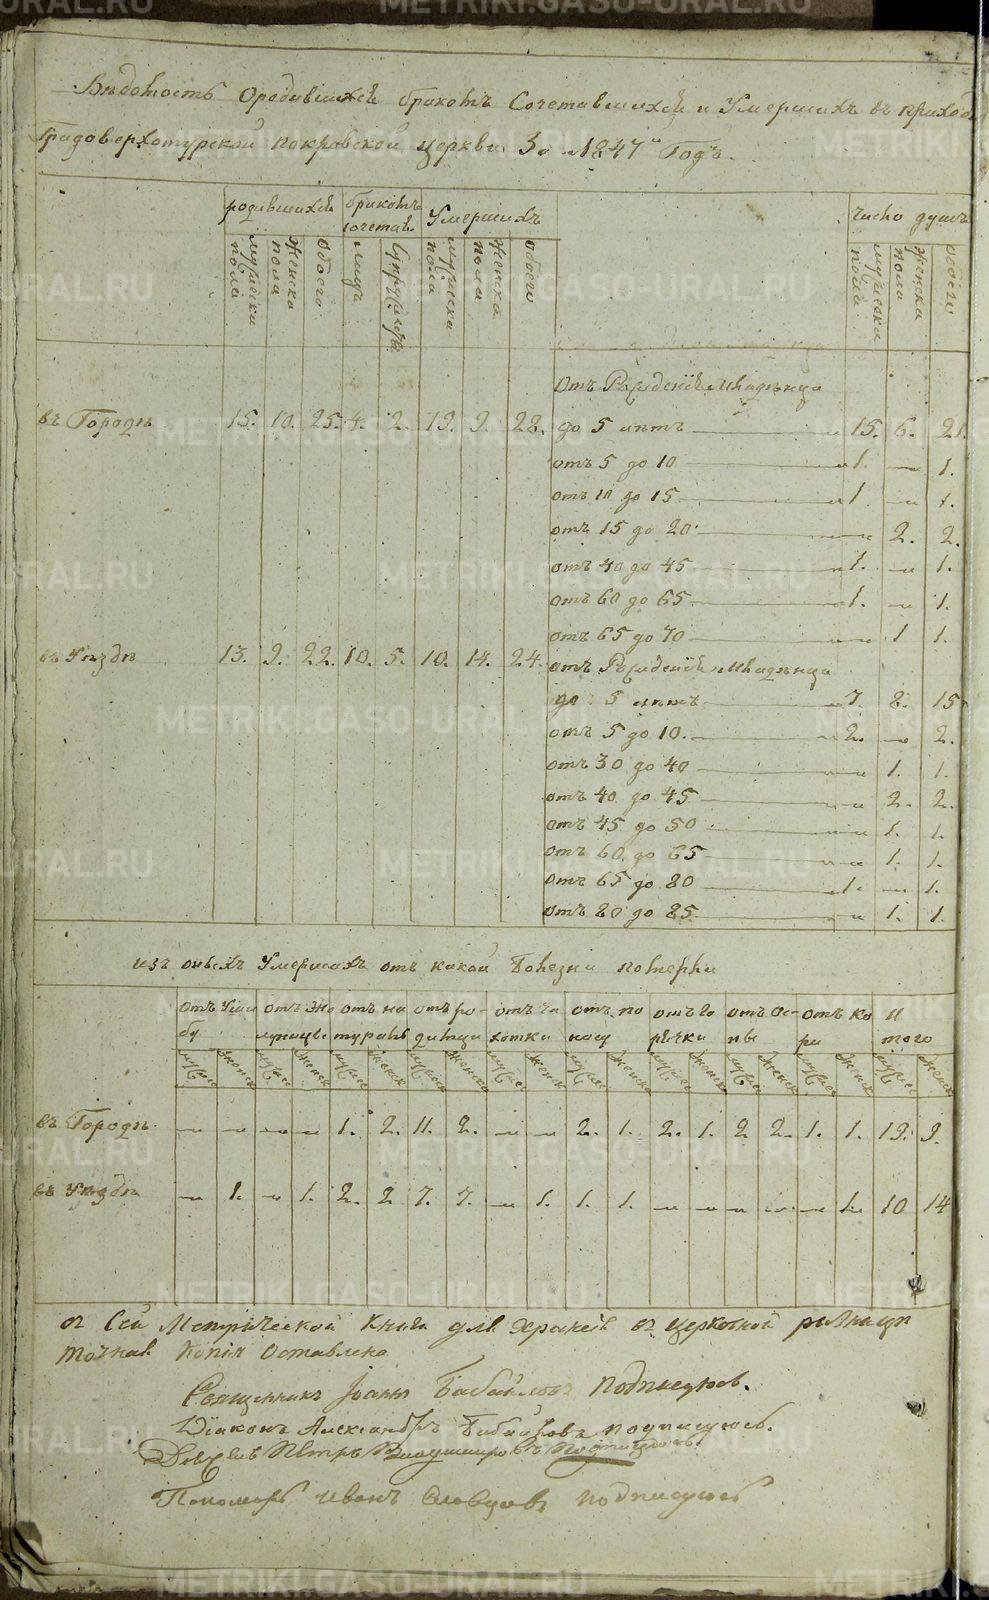 Вѣдомость Ородившихся бракомъ Сочетавшихся и Умершихъ въ приходѣ
Градоверхотурской покровской церкви За 1847й Годъ.
родившихся бракомъ сочетав. Умершихъ число душъ
мужеска пола женска пола обоего лицъ супружествъ мужеска пола женска пола обоего мужеска пола женска пола обоего
Отъ Рожденiя Младенца
въ Городѣ 15. 10. 25. 4. 2. 19. 9. 28. до 5 лѣтъ 15. 6. 21.
отъ 5 до 10 1. — 1.
отъ 10 до 15 1 — 1.
отъ 15 до 20 — 2. 2.
отъ 40 до 45 1. — 1.
отъ 60 до 65 1. — 1.
отъ 65 до 70 — 1 1.
въ Уѣздѣ 13. 9. 22. 10. 5. 10. 14. 24. отъ Рожденiя Младенца
до 5 лѣтъ 7. 8. 15
отъ 5 до 10. 2. — 2.
отъ 30 до 40 — 1. 1.
отъ 40 до 45 — 2. 2.
отъ 45 до 50 — 1. 1.
отъ 60 до 65 — 1. 1.
отъ 65 до 80 1. — 1.
отъ 80 до 85 — 1. 1.
изъ оныхъ Умершихъ отъ какой Болезни померли
отъ на туры отъ ро димца отъ ча хотки отъ по носу отъ Го рячки отъ Ос- пы отъ Ко ри И того
мужес женск мужес женск мужес женск мужес женск мужес женск мужес женск мужес женск мужес женск мужес женск мужес женск
въ Городѣ — — — — 1. 2. 11. 2. — — 2. 1. 2. 1. 2 2. 1. 1. 19. 9.
въ Уѣздѣ — 1. — 1. 2. 2 7. 7. — 1. 1. 1. — — — — — 1. 10 14
съ Сей Метрической Книги для Храненiя въ церковной ризницѣ
точная Копiя Оставлена
Священникъ Iоаннъ Бабайловъ Подписуюсь.
Дiаконъ Александръ Бабайловъ подписуюсь.
Дьячекъ Петръ Владимировъ Подписуюсь.
Пономарь Иванъ Словцовъ подписуюсь
METRIKI.GASO-URAL.RU